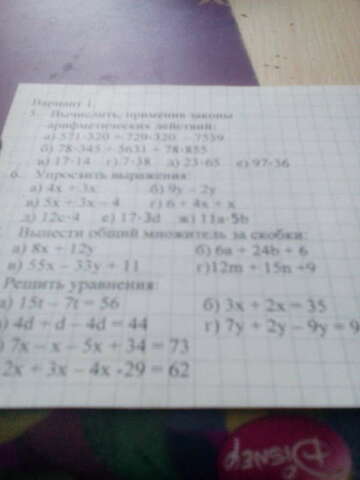 Вариант 1.
5. Вычислить, применяя законы
арифметических действий:
а) 571·320 + 729·320 - 7559
б) 78·345 + 5631 + 78·855
в) 17·14 г) 7·38 д) 23·65 е) 97·36
6. Упростить выражения:
а) 4x + 3x б) 9y – 2y
в) 5x + 3x – 4 г) 6 + 4x + x
д) 12c·4 е) 17·3d ж) 11a·5b
Вынести общий множитель за скобки:
а) 8x + 12y б) 6a + 24b + 6
в) 55x – 33y + 11 г)12m + 15n +9
Решить уравнения:
а) 15t – 7t = 56 б) 3x + 2x = 35
) 4d + d – 4d = 44 г) 7y + 2y – 9y = 9
) 7x – x – 5x + 34 = 73
2x + 3x – 4x -29 = 62
DISNEY